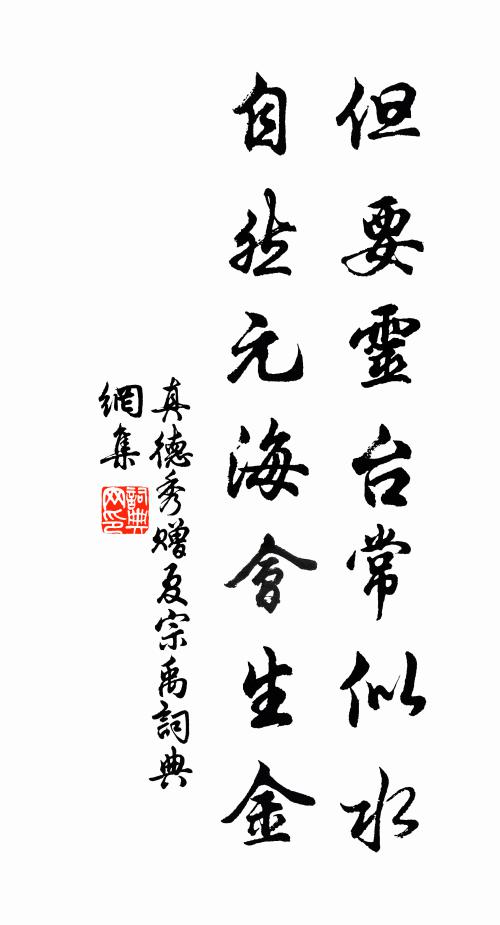 但要靈台常似水
自然元海會生金
真德秀贈夏宗禹詞典
網集
詞典
网印